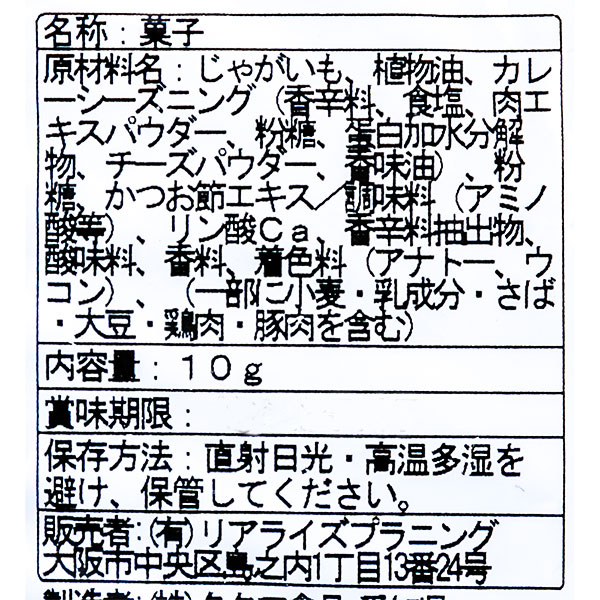 名称：菓子
原材料名：じゃがいも、植物油、カレ
ーシーズニング（香辛料、食塩、肉エ
キスパウダー、粉糖、蛋白加水分解
物、チーズパウダー、香味油）、粉
糖、かつお節エキス／調味料（アミノ
酸等）、リン酸Ｃａ、香辛料抽出物、
酸味料、香料、着色料（アナトー、ウ
コン）、（一部に小麦・乳成分・さば
・大豆・鶏肉・豚肉を含む）
内容量：１０ｇ
賞味期限：
保存方法：直射日光・高温多湿を
避け、保管してください。
販売者：（有）リアライズプラニング
大阪市中央区島之内1丁目13番24号